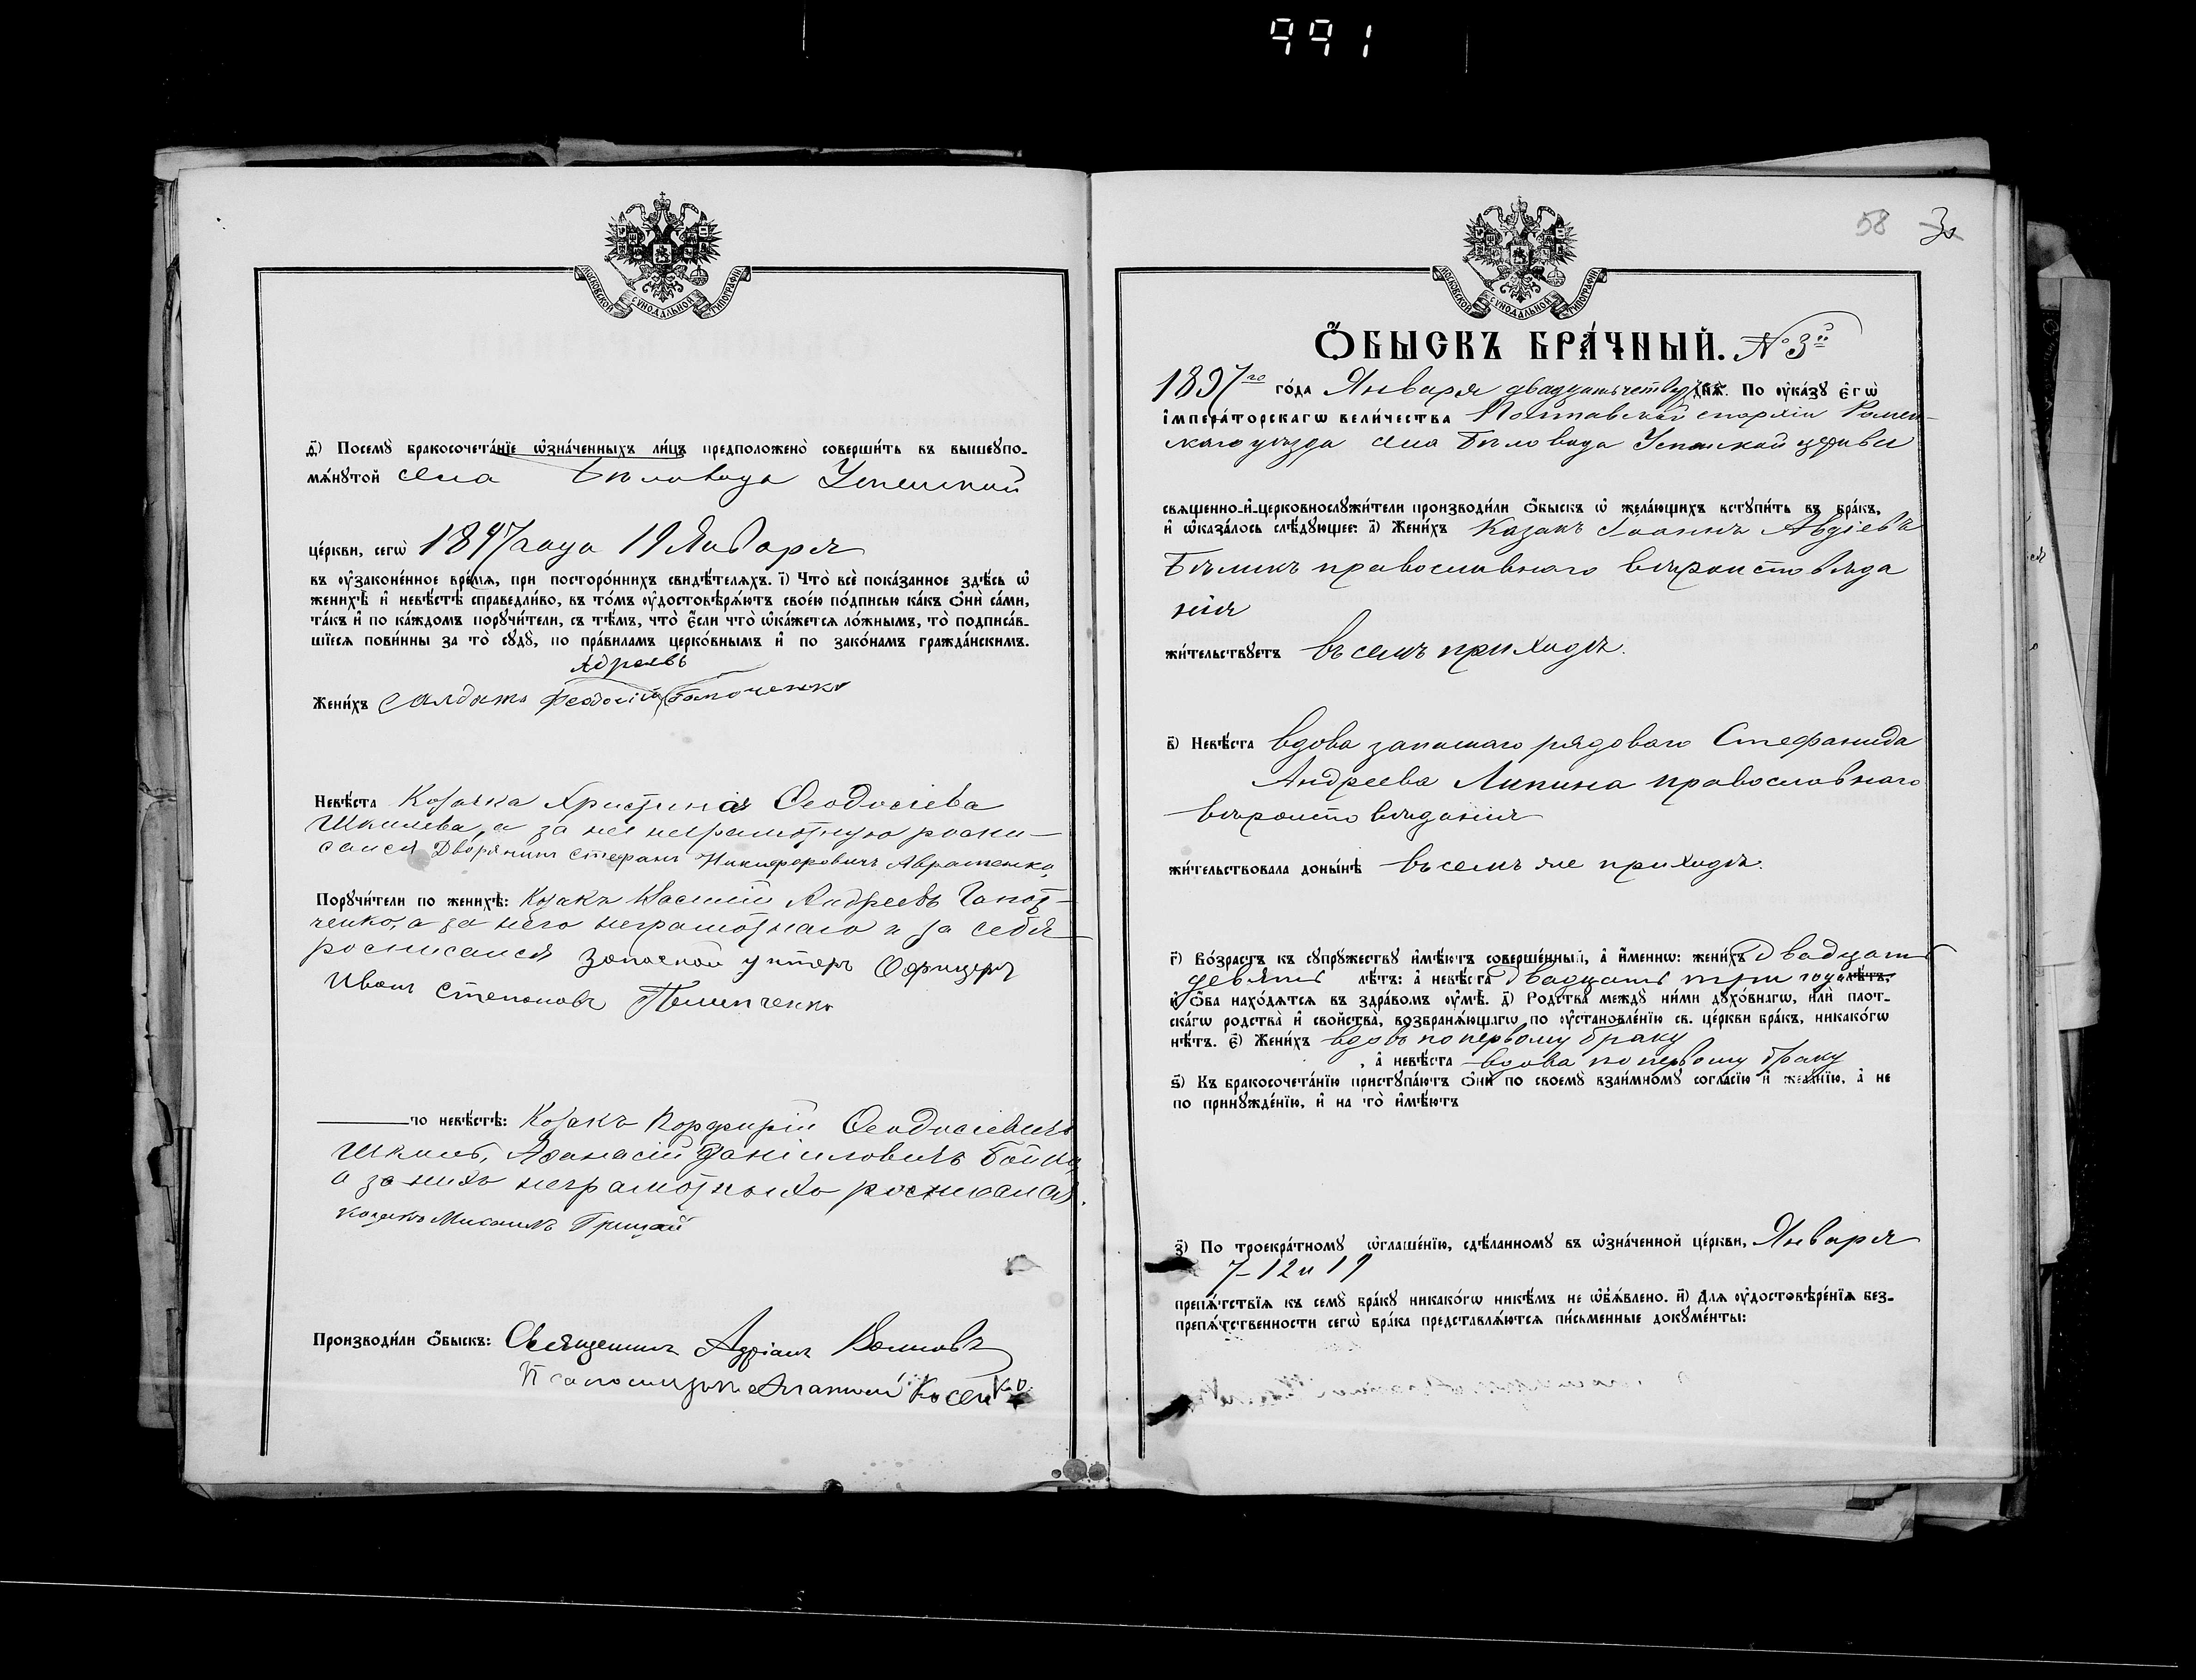 991
МОСКОВСКОЙ СѴНОДАЛЬНОЙ ТИПОГРАФІИ
д҃) Посемꙋ бракосочета́нїе ѡ҆зна́ченныхъ ли́цъ предположено̀ соверши́ть въ вышеꙋпо-
мѧ́нꙋтой села Бѣловода Успенской
це́ркви, сегѡ̀ 1897 года 19 Января
въ ᲂу҆законе́нное вре́мѧ, при посторо́ннихъ свидѣ́телѧхъ. і҃) Что̀ всѐ пока́занное здѣ́сь ѡ҆
женихѣ̀ и҆ невѣ́стѣ справедли́во, въ то́мъ ᲂу҆достовѣрѧ́ютъ свое́ю по́дписью ка́къ ѻ҆нѝ са́ми,
та́къ и҆ по ка́ждомъ порꙋчи́тели, съ тѣ́мъ, что̀ є҆́сли что̀ ѡ҆ка́жетсѧ ло́жнымъ, то̀ подписа́в-
шїесѧ пови́нны за то̀ сꙋдꙋ̀, по пра́виламъ церко́внымъ и҆ по зако́намъ гражда́нскимъ.
Жени́хъ Салдатъ Феодосій
Невѣ́ста Козачка Христина Ѳеодосіева
Шкилева, а за нея неграмотную роспи-
сался Дворянинъ Стефанъ Никифоровичъ Авраменко,
Порꙋчи́тели по женихѣ̀: Козакъ Василій Андреевъ Гапот-
ченко, а за него неграмотнаго и за себя
росписался Запасной унтеръ Офицеръ
Иванъ Степановъ Пилипченко
по невѣ́стѣ: Козакъ Порфирій Ѳеодосіевичъ
Шкиль, Афанасій Даніиловичъ Бойко
а за нихъ неграмотныхъ росписался
козакъ Михаилъ Грицай
Производи́ли ѻ҆́быскъ: Священникъ Адріанъ
Псаломщикъ
58 3
МОСКОВСКОЙ СѴНОДАЛЬНОЙ ТИПОГРАФІИ
Ѻ҆́БЫСКЪ БРА́ЧНЫЙ. № 3й
1897го го́да Января двадцать четвер дня̀. По ᲂу҆ка́зꙋ є҆гѡ̀
і҆мпера́торскагѡ вели́чества Полтавской епархіи Ромен-
скаго уѣзда села Бѣловода Успенской церкви
свѧще́нно-и҆-церковнослꙋжи́тели производи́ли ѻ҆́быскъ ѡ҆ жела́ющихъ встꙋпи́ть въ бра́къ,
и҆ ѡ҆каза́лось слѣ́дꙋющее: а҃) Жени́хъ Казакъ Іоаннъ Авдіевъ
Бѣликъ православнаго вѣроисповѣда
нія
жи́тельствꙋетъ въ семъ приходѣ.
в҃) Невѣ́ста вдова запаснаго рядового Стефанида
Андреева Липина православнаго
вѣроисповѣданія
жи́тельствовала доны́нѣ въ семъ же приходѣ.
г҃) Во́зрастъ къ сꙋпрꙋ́жествꙋ и҆мѣ́ютъ соверше́нный, а҆ и҆́меннѡ: жени́хъ Двадцать
девять лѣ́тъ: а҆ невѣ́ста Двадцать три года лѣ́тъ,
и҆ ѻ҆́ба нахо́дѧтсѧ въ здра́вомъ ᲂу҆мѣ̀. д҃) Родства̀ междꙋ̀ ни́ми дꙋхо́внагѡ, и҆лѝ плот-
ска́гѡ родства̀ и҆ сво́йства, возбранѧ́ющагѡ по ᲂу҆становле́нїю св. це́ркви бра́къ, никако́гѡ
нѣ́тъ. є҃) Жени́хъ вдовъ по первому браку
, а҆ невѣ́ста вдова по первому браку
ѕ҃) Къ бракосочета́нїю пристꙋпа́ютъ ѻ҆нѝ по своемꙋ̀ взаи́мномꙋ согла́сїю и҆ жела́нїю, а҆ не
по принꙋжде́нїю, и҆ на то̀ и҆мѣ́ютъ
з҃) По троекра́тномꙋ ѡ҆глаше́нїю, сдѣ́ланномꙋ въ ѡ҆зна́ченной це́ркви, Января
7- 12 и 19
препѧ́тствїѧ къ семꙋ̀ бра́кꙋ никако́гѡ никѣ́мъ не ѡ҆б̾ѧ́влено. и҃) Для ᲂу҆достовѣре́нїѧ без-
препѧ́тственности сегѡ̀ бра́ка представлѧ́ютсѧ пи́сьменные докꙋме́нты: